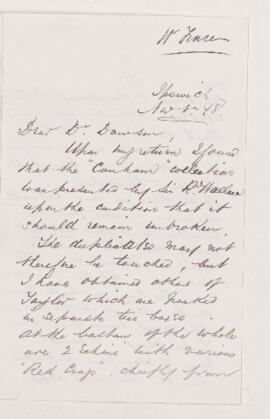 Ipswich
Nov 1st 78.
Dear Dr. Dawson,
Upon my return I found
that the "Canham" collection
was presented by Sir Rd. Wallace
upon the condition that it
should remain unbroken.
The duplicates may not
therefore be touched, but
I have obtained others of
Taylor which are packed
in separate tin boxes.
At the bottom of the whole
are 2 with various
"Red Crag" chiefly from